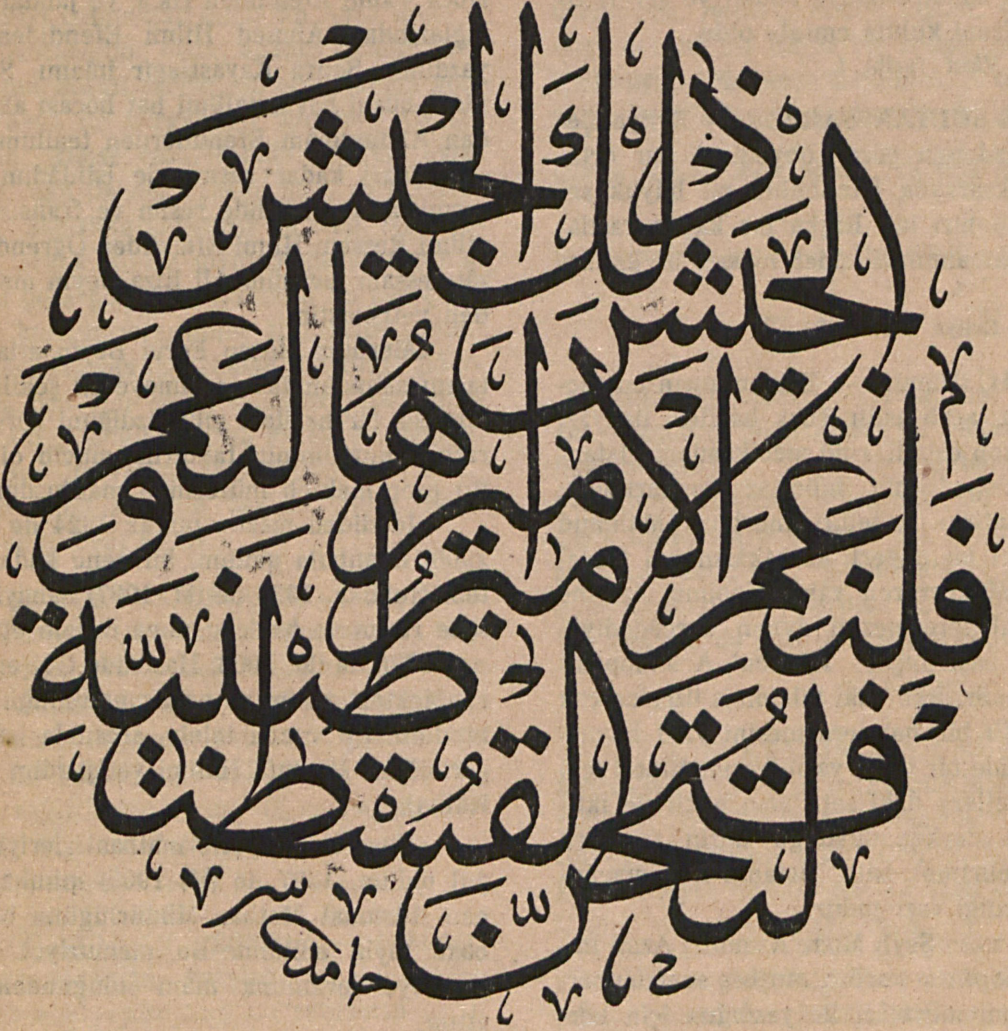 لتفتحن القسطنطنية
فلنعم الامير اميرها ولنعم
الجيش ذلك الجيش
حامد